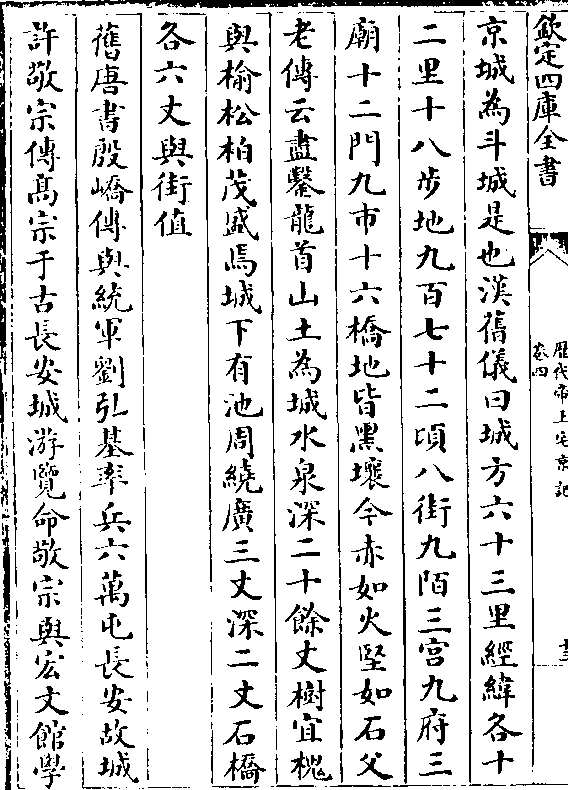 欽定四庫全書
歷代帝王宅京記
卷四
十三
京城為斗城是也漢舊儀曰城方六十三里經緯各十
二里十八步地九百七十二頃八街九陌三宮九府三
廟十二門九市十六橋地皆黑壤今赤如火堅如石父
老傳云盡鑿龍首山土為城水泉深二十餘丈樹宜槐
與榆松柏茂盛焉城下有池周繞廣三丈深二丈石橋
各六丈與街值
舊唐書殷嶠傳與統軍劉弘基率兵六萬屯長安故城
許敬宗傳髙宗于古長安城游覽命敬宗與宏文館學